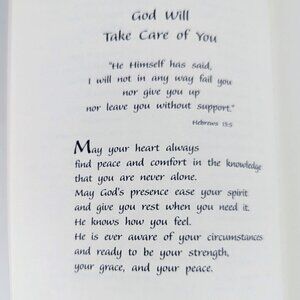 God Will
Take Care of You
"He Himself has said,
I will not in any way fail you
nor give you up
nor leave you without support."
Hebrews 13:5
May your heart always
find peace and comfort in the knowledge
that you are never alone.
May God's presence ease your spirit
and give you rest when you need it.
He knows how you feel.
He is ever aware of your circumstances
and ready to be your strength,
your grace, and your peace.